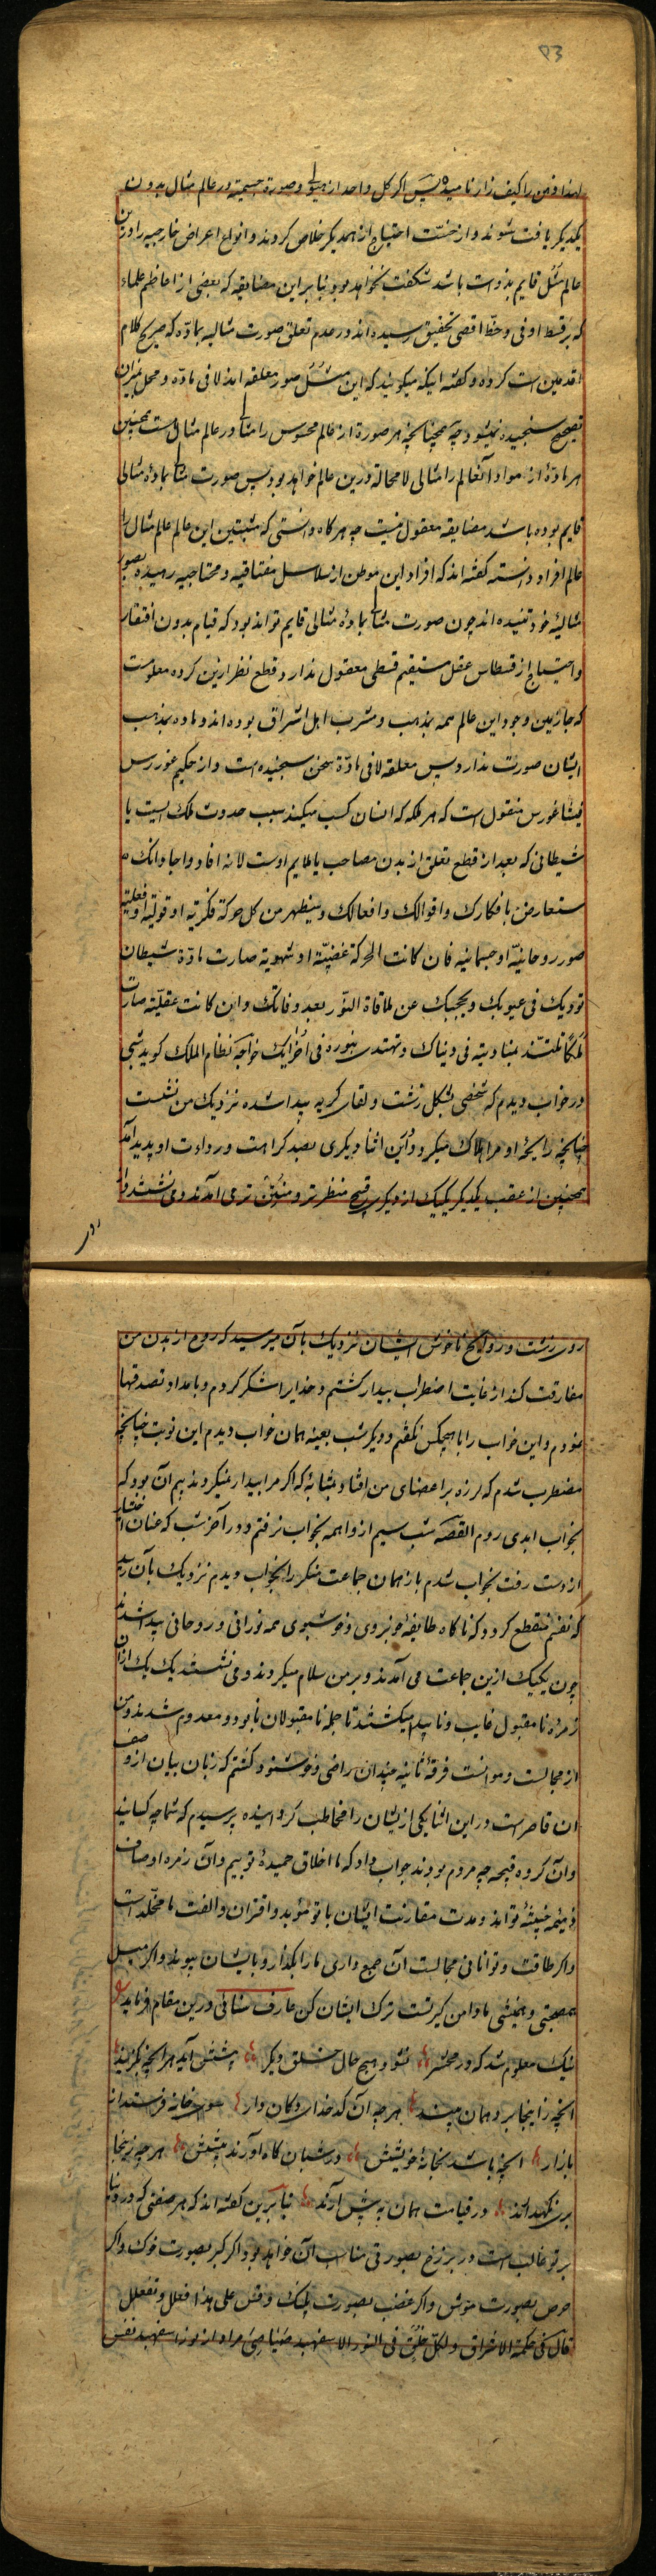 ۵۳
لهذا ذهن را کیف زار نامیده پس اگر کل واحد از هیولی و صورة جسمیه در عالم مثال بدون
یکدیگر یافت شوند و از خست احتیاج از همدیگر خلاص گردند و انواع اعراض خارجیه را درین
عالم مثل قایم بذوات باشد شگفت نخواهد بود بنا بر این مضایقه که بعضی از اعاظم علماء
که بقسط اوفی و حظ اقصی تحقیق رسیده اند در عدم تعلق صورت مثالیه بماده که صریح کلام
اقدمین است کرده و گفته اینکه میگویند که این مثل صور معلقه اند لا فی ماده و محل بمیزان
تصحیح سنجیده نمیشود چه همچنانچه هر صورة از عالم محسوس را مثالی در عالم مثال است همچنین
هر مادۀ از مواد آنعالم را مثالی لا محاله درین عالم خواهد بود پس صورت مثالی بمادۀ مثالی
قایم بوده باشد مضایقه معقول نیست چه هرگاه دانستی که مثبتین این عالم عالم مثال را
عالم افراد دانسته گفته اند که افراد این موطن از سلاسل مفتاقیه و محتاجیه رهیده بصور
مثالیۀ خود تنیده اند چون صورت مثالی بمادۀ مثالی قایم تواند بود که قیام بدون افتقار
و احتیاج از قسطاس عقل مستقیم قسطی معقول ندارد و قطع نظر ازین کرده معلومست
که جازمین وجود این عالم همه بمذهب و مشرب اهل اشراق بوده اند و ماده بمذهب
ایشان صورت ندارد پس معلقه لا فی مادّة سخن سنجیده است و از حکیم غوررس
فیثاغورس منقول است که هر ملکه که انسان کسب میکند سبب حدوث ملک است یا
شیطانی که بعد از قطع تعلق از بدن مصاحب یا ملایم اوست لانه افاد و اجاد انک
ستعارض بافکارک و اقوالک و افعالک و سیظهر من کل حرکة فکریة او قولیة او فعلیة
صور روحانیّة او جسمانیه فان کانت الحرکة غضبیّة او شهویة صارت مادّة شیطان
توذیک فی عیوبک و یحجبک عن ملاقاة النّور بعد وفاتک و ان کانت عقلیّة صارت
ملکًا تلتذ بمنادمته فی دنیاک و تهتدی بنوره فی اخراک خواجه نظام الملک گوید شبی
در خواب دیدم که شخصی بشکل زشت و لقای کریه پیدا شده نزدیک من نشست
چنانچه رایحۀ او مرا هلاک میکرد و این اثنا دیگری بصد کراهت و رداءت او پدید آمد
همچنین از عقب یکدیگر یکیک از دیگری قبیح منظرتر و منتن تر می آمدند و می نشستند و از
روی زشت و روایح ناخوش ایشان نزدیک بآن میرسید که روح از بدن من
مفارقت کند از غایت اضطراب بیدار گشتم و خدایرا شکر کردم و بامداد تصدقها
نمودم و این خواب را با هیچکس نگفتم و دیگر شب بعینه همان خواب دیدم این نوبت چنانچه
مضطرب شدم که لرزه بر اعضای من افتاد بمثابۀ که اگر مرا بیدار نمیکردند بیم آن بود که
بخواب ابدی روم القصه شب سیم از واهمه بخواب نرفتم و در آخر شب که عنان اختیار
از دست رفت بخواب شدم باز همان جماعت منکر را بخواب دیدم نزدیک بآن رسید
که نفسم منقطع گردد که ناگاه طایفۀ خوبروی و خوشبوی همه نورانی و روحانی پیدا شدند
چون یکیک ازین جماعت می آمدند و بر من سلام میکردند و می نشستند یک یک از آن
زمرۀ نامقبول غایب و ناپیدا میگشتند تا جمله نامقبولان نابود و معدوم شدند و من
از مجالست و موانست فرقۀ ثانیه چندان راضی و خوشنود گشتم که زبان بیان از وصف
آن قاصر است در این اثنا یکی از ایشان را مخاطب گردانیده پرسیدم که شما چه کسانید
و آن گروه قبیحه چه مردم بودند جواب داد که ما اخلاق حمیدۀ توییم و آن زمره اوصاف
ذمیمه خبیثۀ تواند و مدت مقارنت ایشان با تو مؤبد و اقتران و الفت ما مخلّد است
و اگر طاقت و توانائی مجالست آن جمع داری ما را بگذار و با ایشان بپیوند و اگر میل
همصحبتی و همنشینی ما دامن گیر تست ترک ایشان کن عارف سنائی درین مقام فرماید
نیک معلوم شد که در محشر نشود هیچ حال خلق دگر پیشش آید هر آنچه بگزیند
آنچه زاینجا برد همان بیند هر چه آن کدخدای دکان دار سوی خانه فرستد از
بازار آنچه باشد بخانۀ خویشش در شبان گاه آورند پیشش هر چه زینجا
بری نگهدارند در قیامت همان به پیش آرند بنابرین گفته اند که هر صفتی که در دنیا
بر تو غالب است در برزخ بصورتی مناسب آن خواهد بود اگر کبر بصورت خوک و اگر
حرص بصورت موش و اگر غضب بصورت پلنگ و قس علی هذا فعلل و تفعلل
قال فی حکمة الاشراق و لکل خلق فی النور الاسفهبد صیاصی مراد از نور اسفهبد نفس